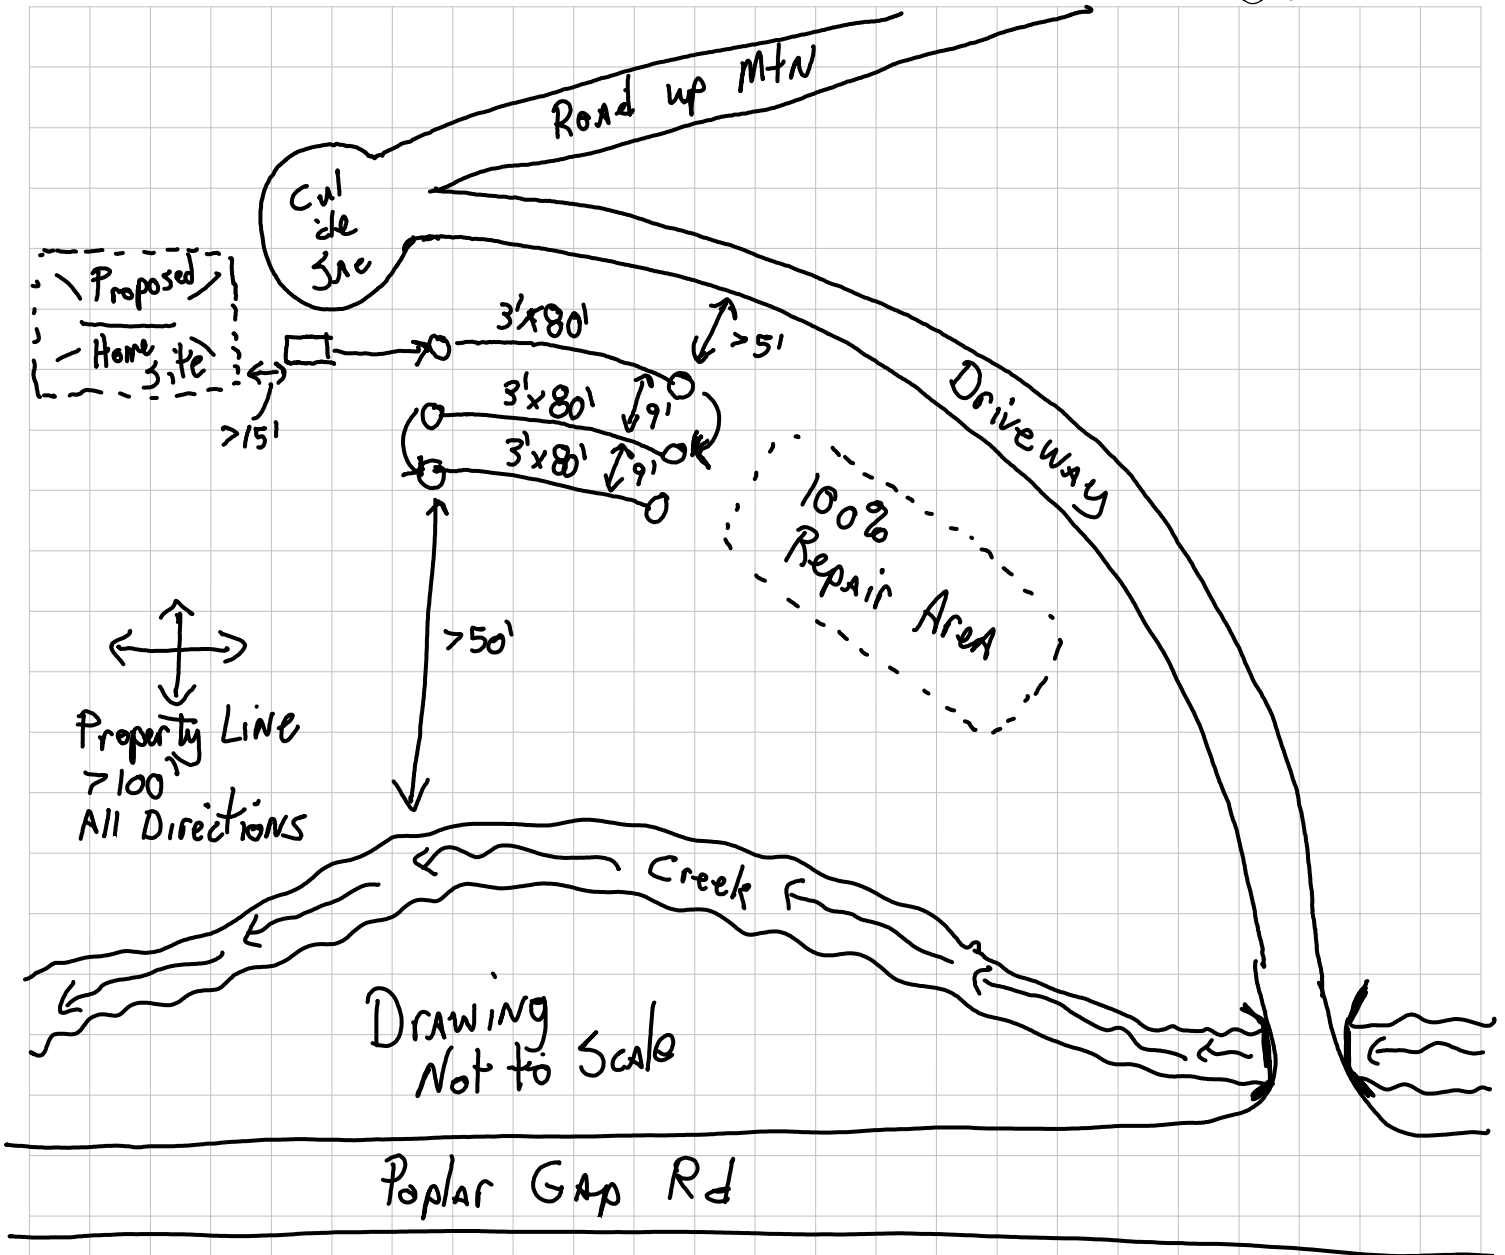 Road up MtN
Cul
de
Sac
Proposed
Home
Site
>15'
3'x80'
>5'
3'x80'
9'
3'x80'
9'
Driveway
100%
Repair
Area
>50'
Property Line
>100'
All Directions
Creek
Drawing
Not to Scale
Poplar Gap Rd